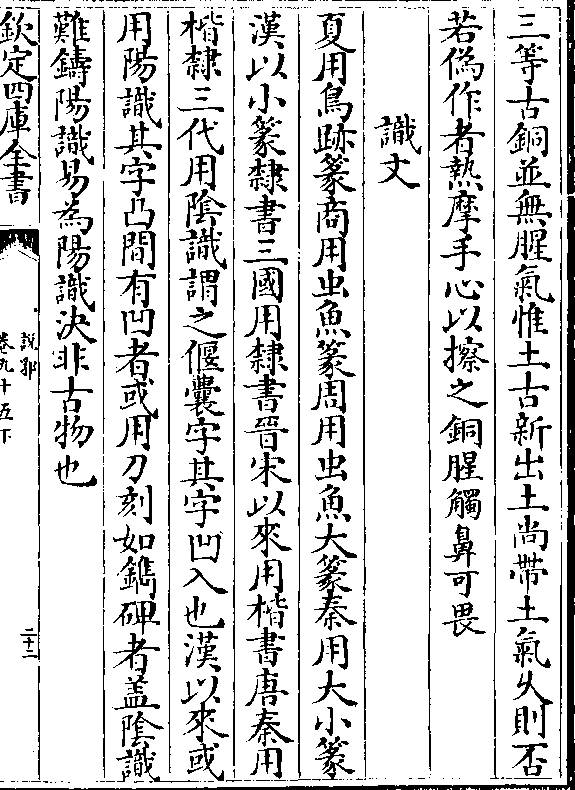 三等古銅並無腥氣惟土古新出土尚帶土氣久則否
若偽作者熱摩手心以擦之銅腥觸鼻可畏
識文
夏用鳥跡篆商用虫魚篆周用虫魚大篆秦用大小篆
漢以小篆隸書三國用隸書晉宋以來用楷書唐秦用
楷隸三代用陰識謂之偃囊字其字凹入也漢以來或
用陽識其字凸間有凹者或用刀刻如鐫碑者盖陰識
難鑄陽識易為陽識決非古物也
欽定四庫全書
說郛
卷九十五下
二十二